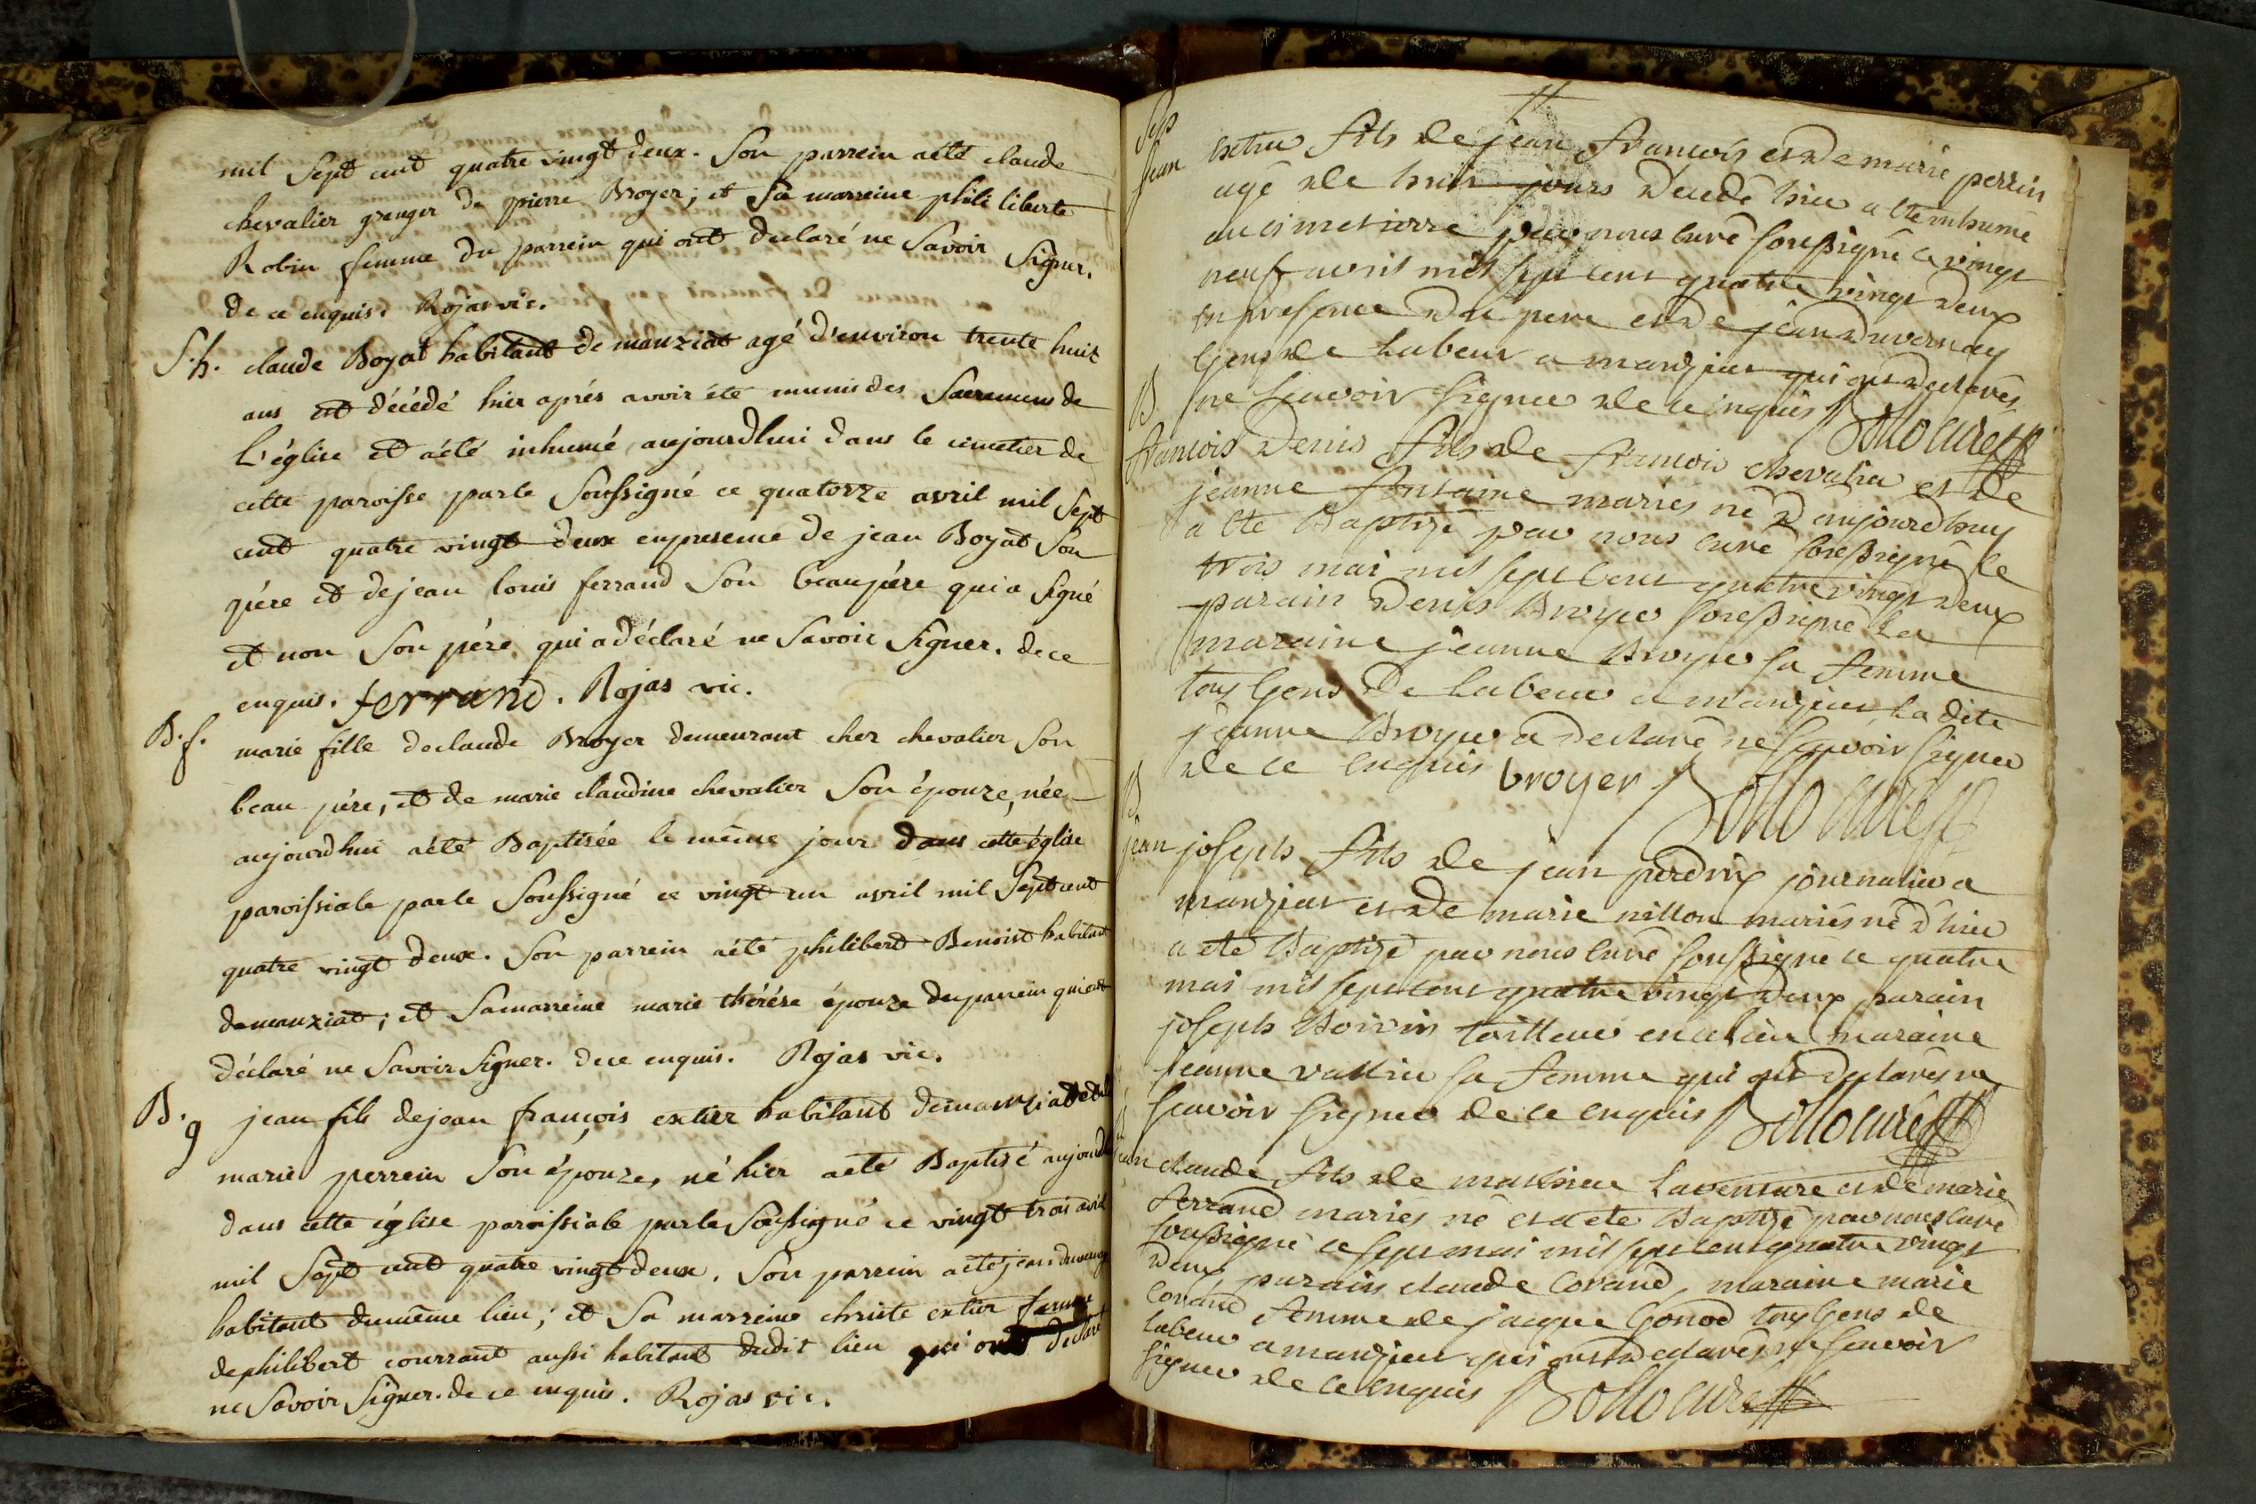 mil Sept cent quatre vingt deux. Son parrein aété claude
chevalier granger de pierre Broyer; et Sa marreine phililiberte
Robin femme du parrein qui ont declaré ne Savoir Signer.
de ce enquis. Rojas vic.
S.h. claude Boyat habitant de manziat agé d'environ trente huit
ans est décédé hier aprés avoir été munis des Sacremens de
L'église et aété inhumé aujourdhui dans le cimetier de
cette paroisse parle Soussigné ce quatorze avril mil Sept
cent quatre vingt deux enpresence de jean Boyat Son
pére et dejean louis ferrand Son beaupére qui a Signé
et non Son pére qui adéclaré ne Savoir Signer. dece
enquis. ferrand. Rojas vic.
B.f. marie fille declaude Broyer demeurant chez chevalier Son
beau pére, et de marie claudine chevalier Son épouze, née
aujourdhui aété Baptisée le même jour dans cette église
paroissiale parle Soussigné ce vingt un avril mil Sept cent
quatre vingt deux. Son parrein aété philibert Benoist habitant
demanziat; et Samarreine marie thérése épouze duparrein qui ont
déclaré ne Savoir Signer. dece enquis. Rojas vic.
B. g jean fils dejean françois extier habitant demanziat et de
marie perrein Son épouze, né hier aété Baptisé aujourdh
dans cette église paroissiale parle Soussigné ce vingt trois avril
mil Sept cent quatre vingt deux. Son parrein aété jean duvernay
habitant dumême lieu; et Sa marreine christe extier femme
dephilibert courrant aussi habitant dudit lieu qui ont declaré
ne Savoir Signer. de ce enquis. Rojas vic.
Sep
jean fils de jean francois et de marie perrin
agé de huit jours decedé hier a eté inhumé
au cimetierre par nous curé soussigné ce vingt
neuf avril mil sept cent quatre vingt deux
en presence du pere et de jean duvernay
gens de labeur a manziat qui ont declarés
ne scavoir signer de ce enquis Bollo curé
B
francois denis fils de francois chevalier et de
jeanne fontaine mariés né d aujourdhuy
a été Baptizé par nous curé soussigné le
trois mai mil sept cent quatre vingt deux
parain denis Broyer soussigné la
maraine jeanne Broyer sa femme
tous gens de labeur a manziat, la dite
jeanne Broyer a declaré ne scavoir signer
de ce enquis broyer Bollo curé
B
jean joseph fils de jean perdrix journalier a
manziat et de marie nillon mariés né d'hier
a eté Baptizé par nous curé soussigné ce quatre
mai mil sept cent quatre vingt deux parain
joseph Boivin tailleur en ce lieu maraine
jeanne vallier sa femme qui ont declarés ne
scavoir signer de ce enquis Bollo curé
B
jean claude fils de mathieu Laventure et de marie
ferrand mariés né et a eté Baptizé par nous curé
soussigné ce sept mai mil sept cent quatre vingt
deux parain claude Corand maraine marie
Corand femme de jacque Gonod tous gens de
labeur a manziat qui ont declarés ne scavoir
signer de ce enquis Bollo curé